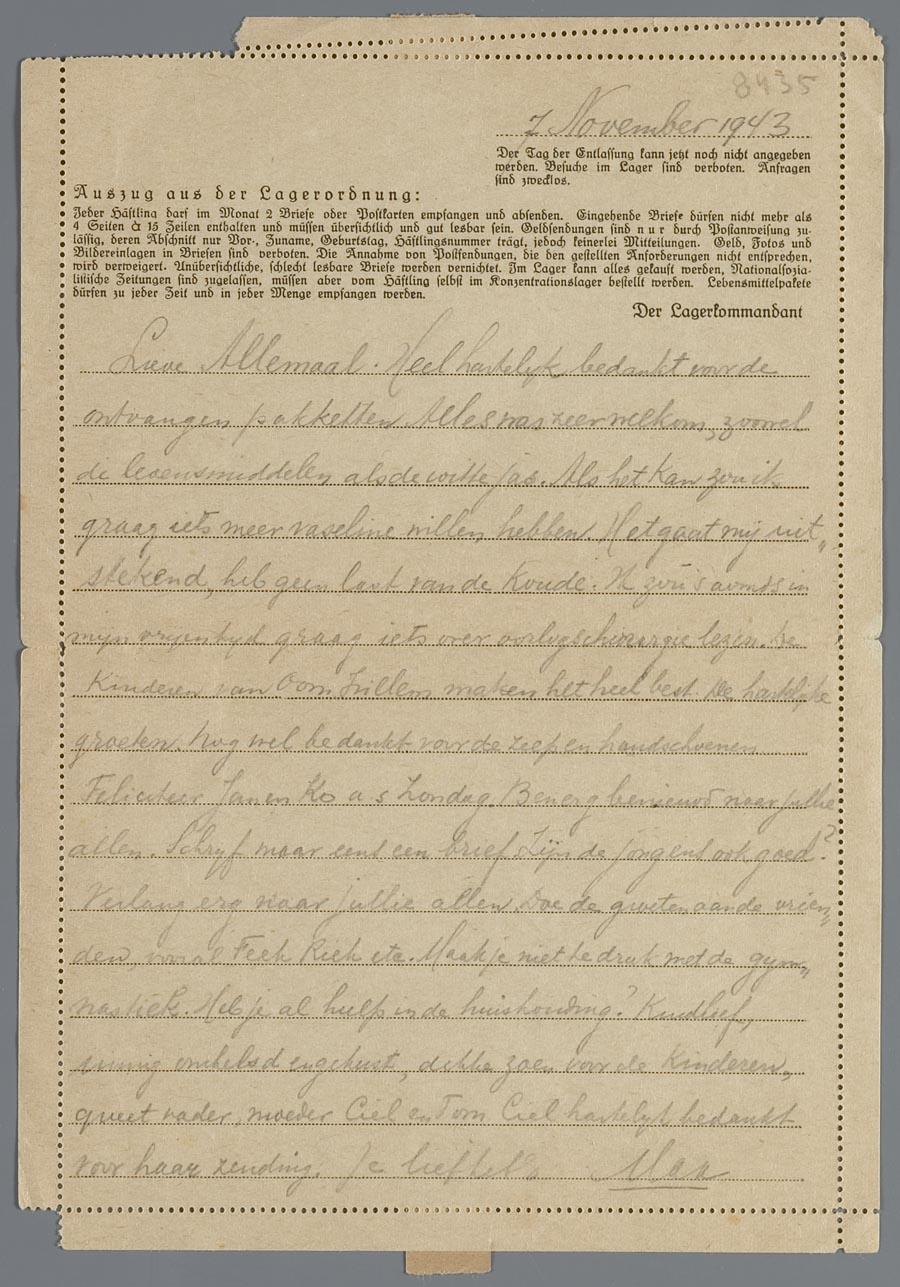 8435
7 November 1943
Der Tag der Entlassung kann jetzt noch nicht angegeben
werden. Besuche im Lager sind verboten. Anfragen
sind zwecklos.
Auszug aus der Lagerordnung:
Jeder Häftling darf im Monat 2 Briefe oder Postkarten empfangen und absenden. Eingehende Briefe dürfen nicht mehr als
4 Seiten à 15 Zeilen enthalten und müssen übersichtlich und gut lesbar sein. Geldsendungen sind nur durch Postanweisung zu-
lässig, deren Abschnitt nur Vor-, Zuname, Geburtstag, Häftlingsnummer trägt, jedoch keinerlei Mitteilungen. Geld, Fotos und
Bildereinlagen in Briefen sind verboten. Die Annahme von Postsendungen, die den gestellten Anforderungen nicht entsprechen,
wird verweigert. Unübersichtliche, schlecht lesbare Briefe werden vernichtet. Im Lager kann alles gekauft werden, Nationalsozia-
listische Zeitungen sind zugelassen, müssen aber vom Häftling selbst im Konzentrationslager bestellt werden. Lebensmittelpakete
dürfen zu jeder Zeit und in jeder Menge empfangen werden.
Der Lagerkommandant
Lieve Allemaal. Heel hartelijk bedankt voor de
ontvangen pakketten Alles was zeer welkom, zoowel
de levensmiddelen als de witte jas. Als het kan zou ik
graag iets meer vaseline willen hebben. Het gaat mij uit„
stekend, heb geen last van de koude. Ik zou 's avonds in
mijn vrijen tijd graag iets over oorlogschirurgie lezen. De
Kinderen van Oom maken het heel best. De hartelijke
groeten. Nog wel bedankt voor de zeep en handschoenen
Feliciteer Jan en Ko a s Zondag. Ben erg benieuwd naar jullie
allen. Schrijf maar eens een brief. Zijn de jongens ook goed?
Verlang erg naar jullie allen. Doe de groeten aan de vrien„
den, vooral Feek Riek etc. Maak je niet te druk met de gym„
nastiek. Heb je al hulp in de huishouding? Kindlief,
innig omhelsd en gekust, dikke zoen voor de Kinderen,
groet vader, moeder Ciel en Tom Ciel hartelijk bedankt
voor haar zending. Je liefheb.